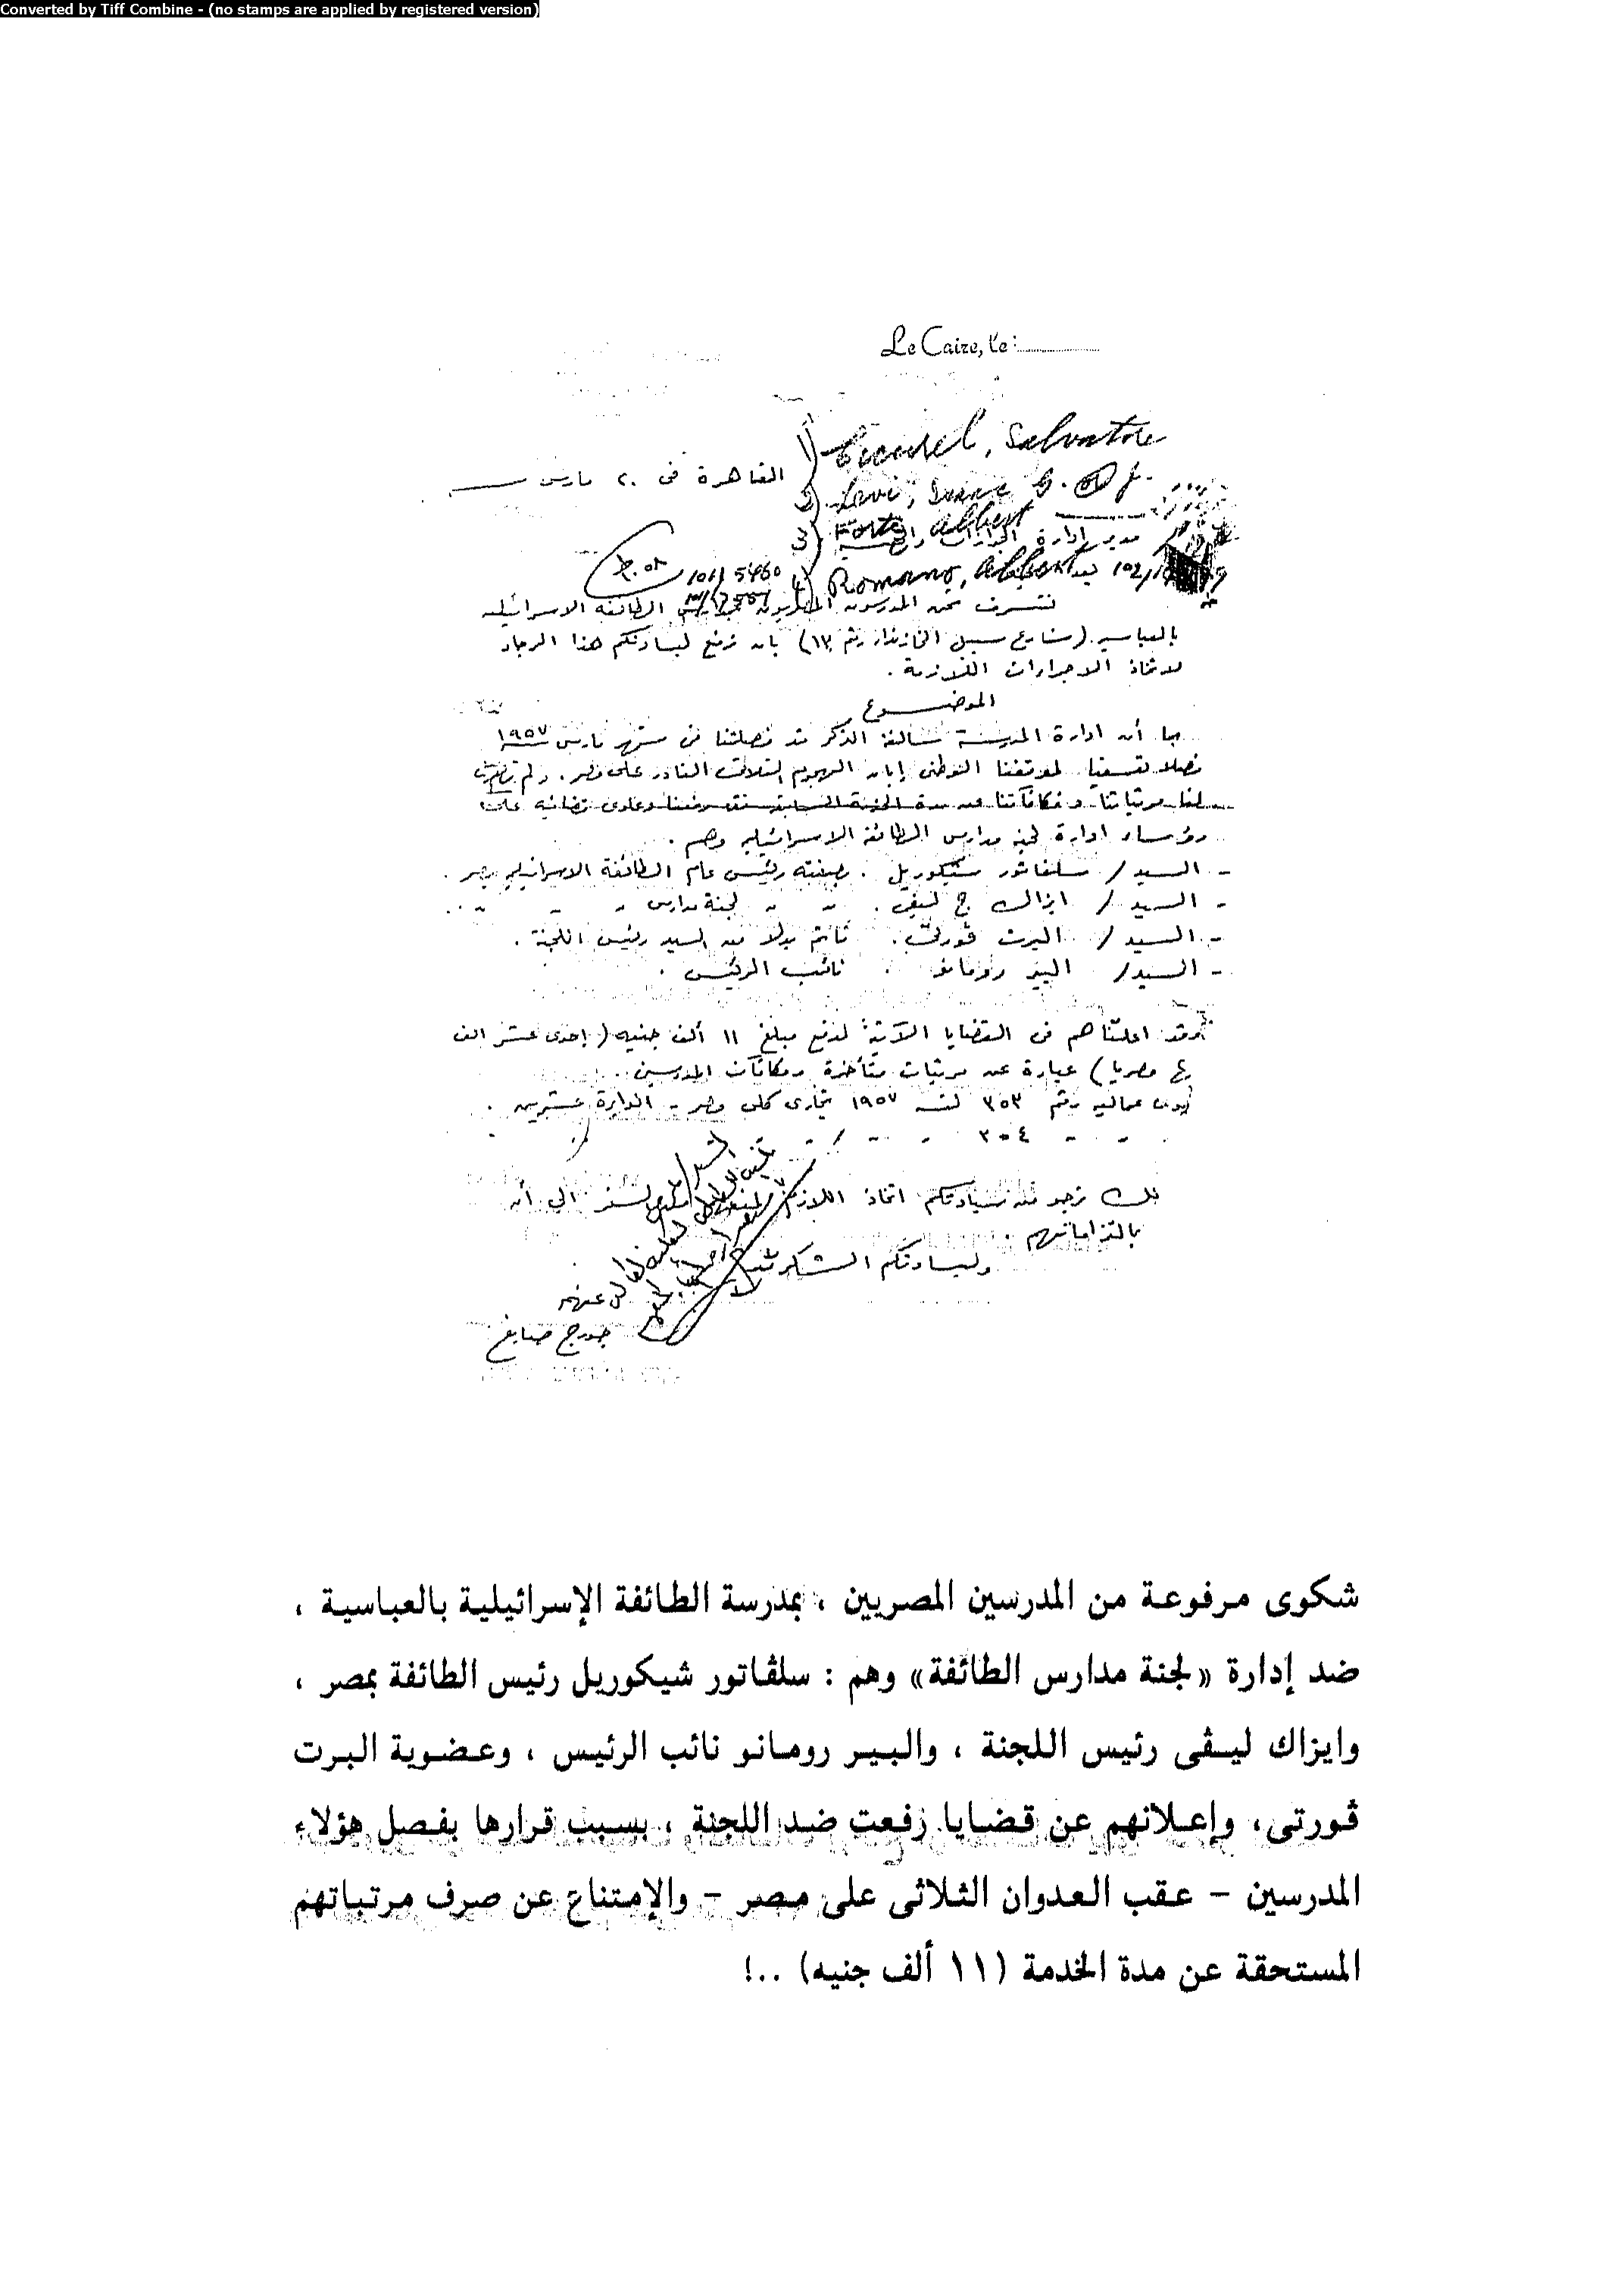 Converted by Tiff Combine - (no stamps are applied by registered version)
Le Caire, le :
1) Salvatore
القاهرة فى ٢٠ مارس
2) Levi, Isaac G.
3) Forte Albert
مدير إدارة الجوازات
101/5460
4) Romano, Albert
نتشرف نحن المدرسون المصريون الطائفة الاسرائيلية
بالعباسية (شارع سبيل الخازندار رقم ١٣) بان نرفع لسيادتكم هذا الرجاء
لاتخاذ الاجراءات اللازمة .
الموضوع
بما أن ادارة المدرسة سالفة الذكر قد فصلتنا فى شهر مارس ١٩٥٧
فصلا تعسفيا لموقفنا الوطنى إبان الهجوم الثلاثى الغادر على مصر . ولم تصرف
لنا مرتباتنا و مكافآتنا عن مدة الخدمة السابقة فقد رفعنا دعاوى قضائية على
رؤساء ادارة لجنة مدارس الطائفة الاسرائيلية وهم .
- السيد / سلفاتور شيكوريل . بصفته رئيس عام الطائفة الاسرائيلية بمصر .
- السيد / ايزاك ج ليفى . " " لجنة مدارس " " "
- السيد / البرت فورتى . قائم بدلا من السيد رئيس اللجنة .
- السيد / البير رومانو . نائب الرئيس .
وقد اعلناهم فى القضايا الآتية لدفع مبلغ ١١ ألف جنيه (إحدى عشر الف
مصريا) عبارة عن مرتبات متأخرة ومكافآت المدرسين .
عمالية رقم ٣٥٣ لسنة ١٩٥٧ تجارى كلى مصر - الدائرة عشرين .
٣٠٤
نرجو من سيادتكم اتخاذ اللازم السفر الى أن
بالتزاماتهم .
ولسيادتكم الشكر
عنهم
جورج صايغ
شكوى مرفوعة من المدرسين المصريين ، بمدرسة الطائفة الإسرائيلية بالعباسية ،
ضد إدارة «لجنة مدارس الطائفة» وهم : سلڤاتور شيكوريل رئيس الطائفة بمصر ،
وايزاك ليڤى رئيس اللجنة ، والبير رومانو نائب الرئيس ، وعضوية البرت
ڤورتى، وإعلانهم عن قضايا رفعت ضد اللجنة ، بسبب قرارها بفصل هؤلاء
المدرسين – عقب العدوان الثلاثى على مصر – والإمتناع عن صرف مرتباتهم
المستحقة عن مدة الخدمة (١١ ألف جنيه) ..!